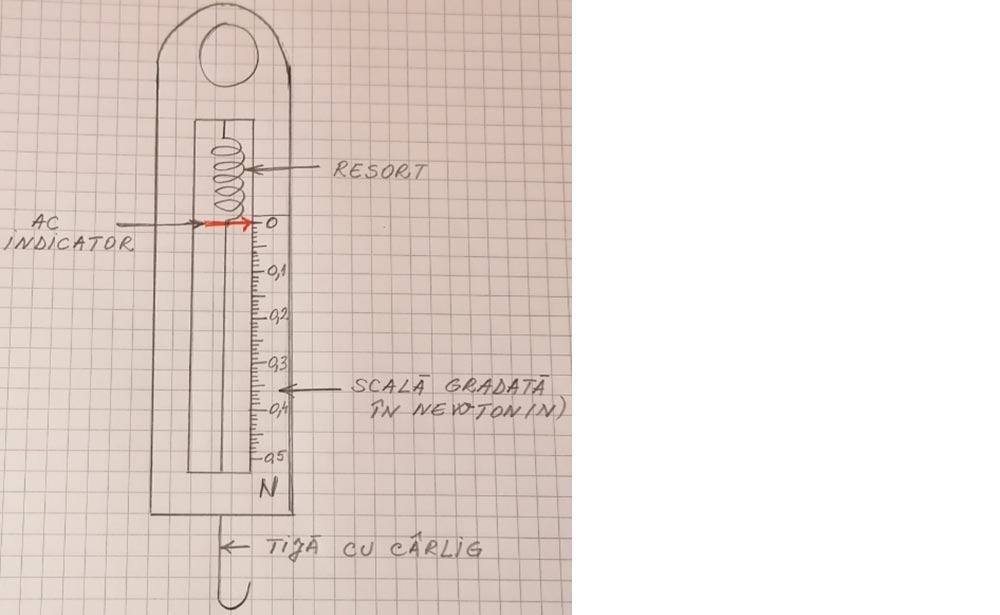 RESORT
AC
INDICATOR
0
0,1
0,2
0,3
SCALĂ GRADATĂ
ÎN NEWTON(N)
0,4
0,5
N
TIJĂ CU CÂRLIG